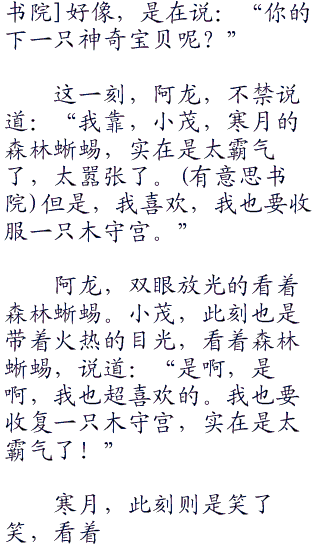 书院]好像，是在说：“你的
下一只神奇宝贝呢？”
这一刻，阿龙，不禁说
道：“我靠，小茂，寒月的
森林蜥蜴，实在是太霸气
了，太嚣张了。(有意思书
院)但是，我喜欢，我也要收
服一只木守宫。”
阿龙，双眼放光的看着
森林蜥蜴。小茂，此刻也是
带着火热的目光，看着森林
蜥蜴，说道：“是啊，是
啊，我也超喜欢的。我也要
收复一只木守宫，实在是太
霸气了！”
寒月，此刻则是笑了
笑，看着